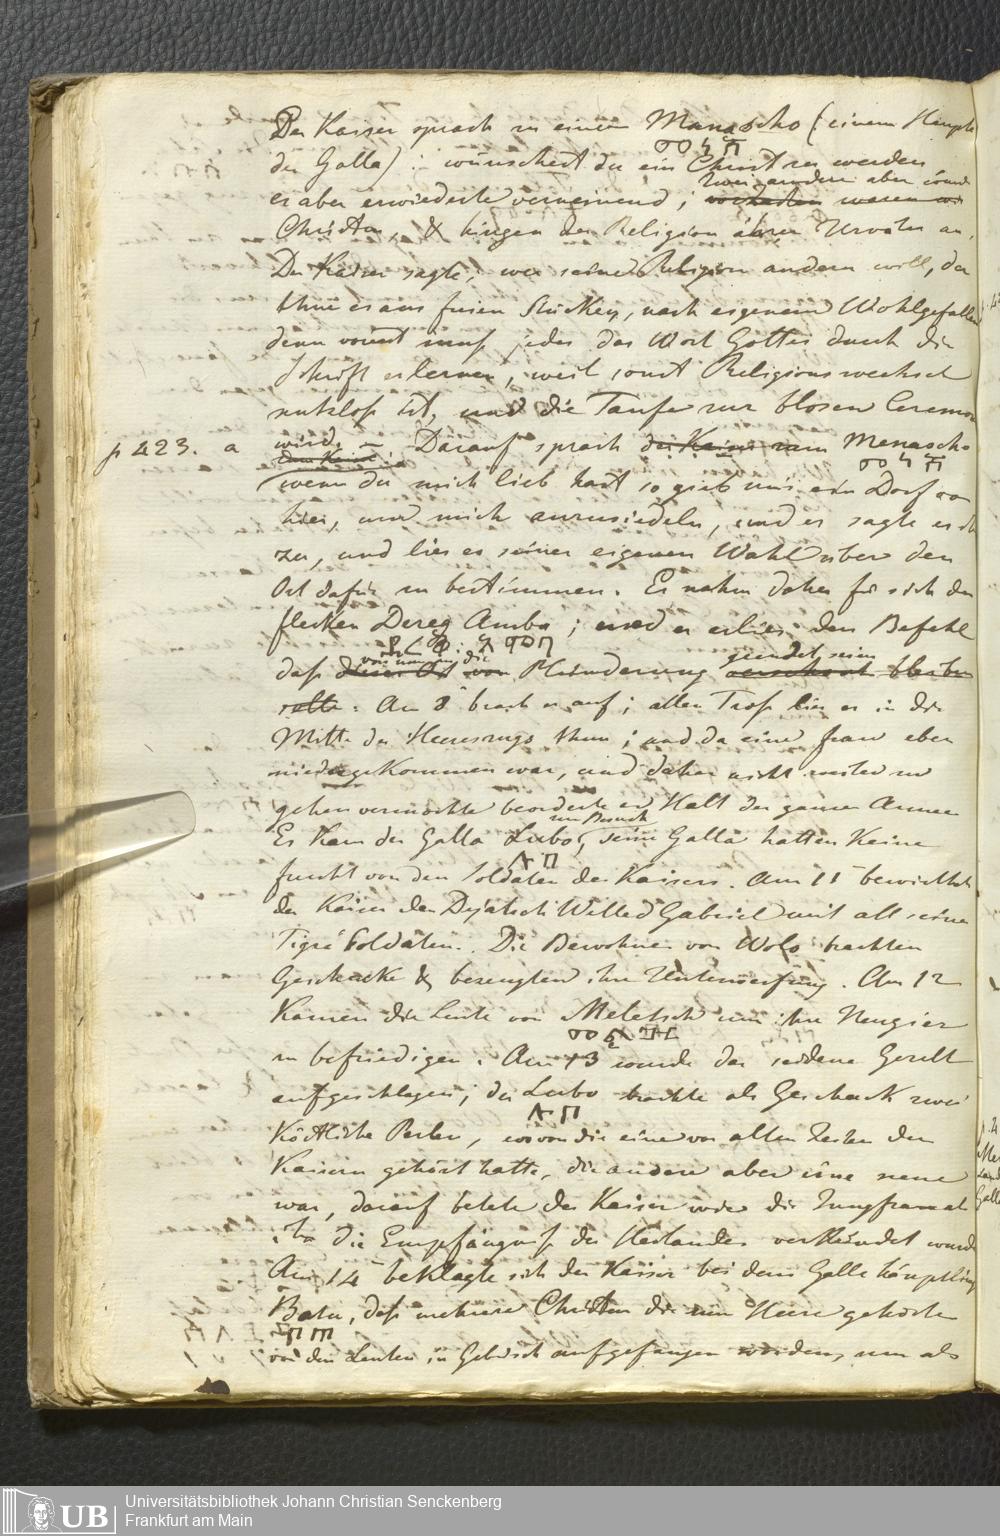 Der Kaiser sprach zu einem Manascho (einem Haupte
der Galla): wünschest du ein Christ zu werden
zwei andere aber
er aber erwiederte verneinend;
Christen, & hingen der Religion ihrer Urväter an.
Der Kaiser sagte, wer seine Religion ändern will, der
thue es aus freien Stücken, nach eigenem Wohlgefallen
denn vorerst muß jeder das Wort Gottes durch die
Schrift erlernen, weil sonst Religionswechsel
nutzlos ist, und die Taufe zur blosen Ceremon
p 423. a wird. — Darauf sprach der Kaiser zum Manascho
wenn du mich lieb hast so gieb mir ein Dorf von
hier, und mich anzusiedeln, und er sagte es ihm
zu, und lies es seiner eigenen Wahl über den
Ort dafür zu bestimmen. Er nahm daher für sich den
flecken Dereg Amba; und er erlies den Befehl
daß dieser Ort von Plünderung verschont bleiben
sollte. Am 8 brach er auf; allen Troß lies er in die
Mitte des Heereszugs thun; und da eine frau eben
niedergekommen war, und daher nicht weiter zu
gehen vermochte beorderte er Halt der ganzen Armee
zum Besuch
Es kam der Galla Lubo, seine Galla hatten keine
ሉቦ
furcht von den Soldaten des Kaisers. Am 11 bewirthete
der Kaiser den Dejatsch Welled Gabriel mit all seinen
Tigré Soldaten. Die Bewohner von Wolo brachten
Geschenke & bezeugten ihre Unterwerfung. Am 12
kamen die Leute von Meletsch um ihre Neugier
zu befriedigen. Am 13 wurde das seidene Gezelt
aufgeschlagen; der Lubo brachte als Geschenk zwei
ሉቦ
köstliche Perlen, wovon die eine von alten Zeiten den
Kaisern gehört hatte, die andere aber eine neue
war, darauf betete der Kaiser wie die Jungfrau als
ihr die Empfängniß des Heilandes verkündet wurde
Am 14 beklagte sich der Kaiser bei dem Galla häuptling
Batu, daß mehrere Christen die zum Heere gehörten
von den Leuten in Gebüsch aufgefangen worden, um als
UB
Universitätsbibliothek Johann Christian Senckenberg
Frankfurt am Main